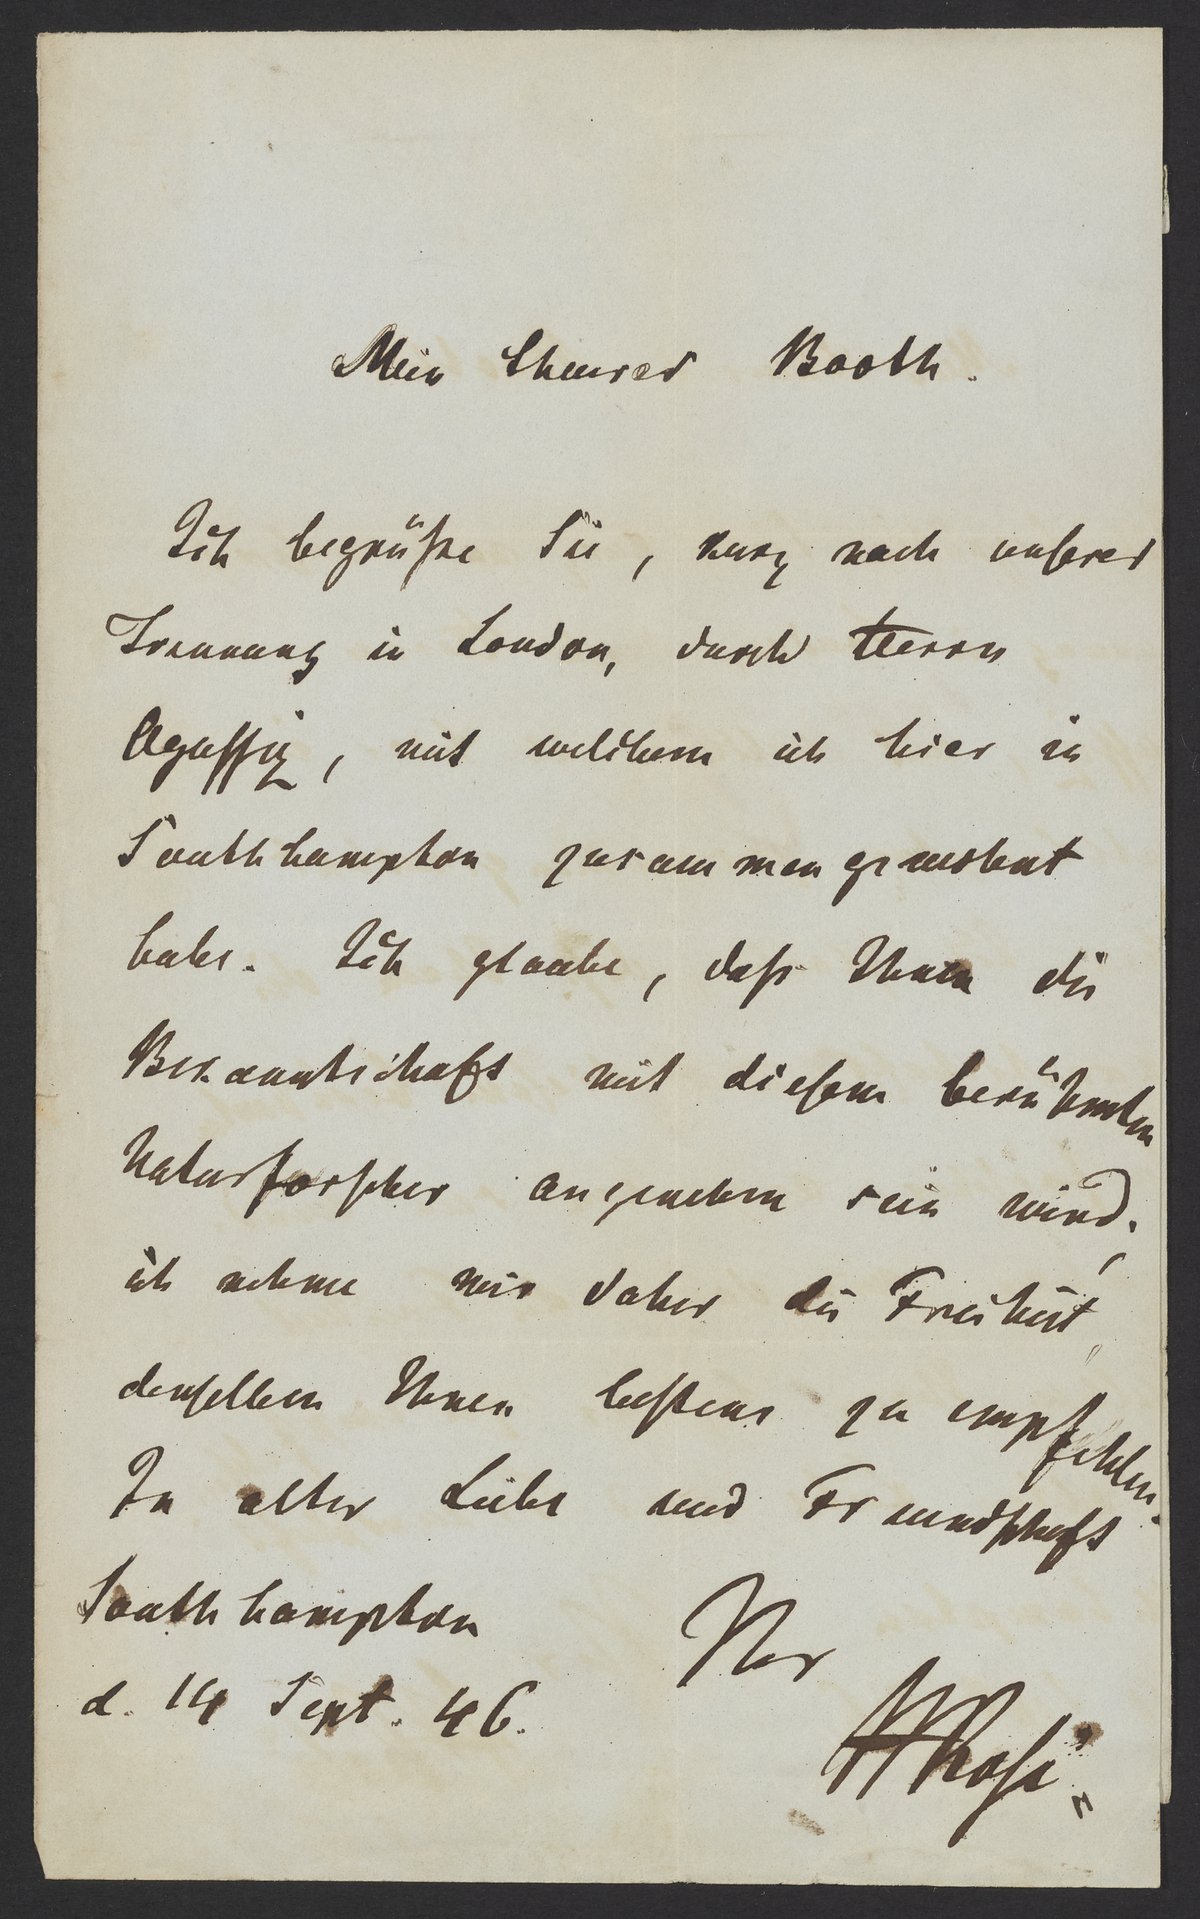 Mein theurer Booth.
Ich begrüße Sie, kurz nach unserer
Trennung in London, durch Herrn
Agassiz, mit welchem ich hier in
Southhampton zusammengewohnt
habe. Ich glaube, daß Ihnen die
Bekanntschaft mit diesem berühmten
Naturforscher angenehm sein wird;
ich nehme mir daher die Freiheit,
denselben Ihnen bestens zu empfehlen.
In alter Liebe und Freundschaft
Southhampton
Ihr
d. 14 Sept. 46.
HRose